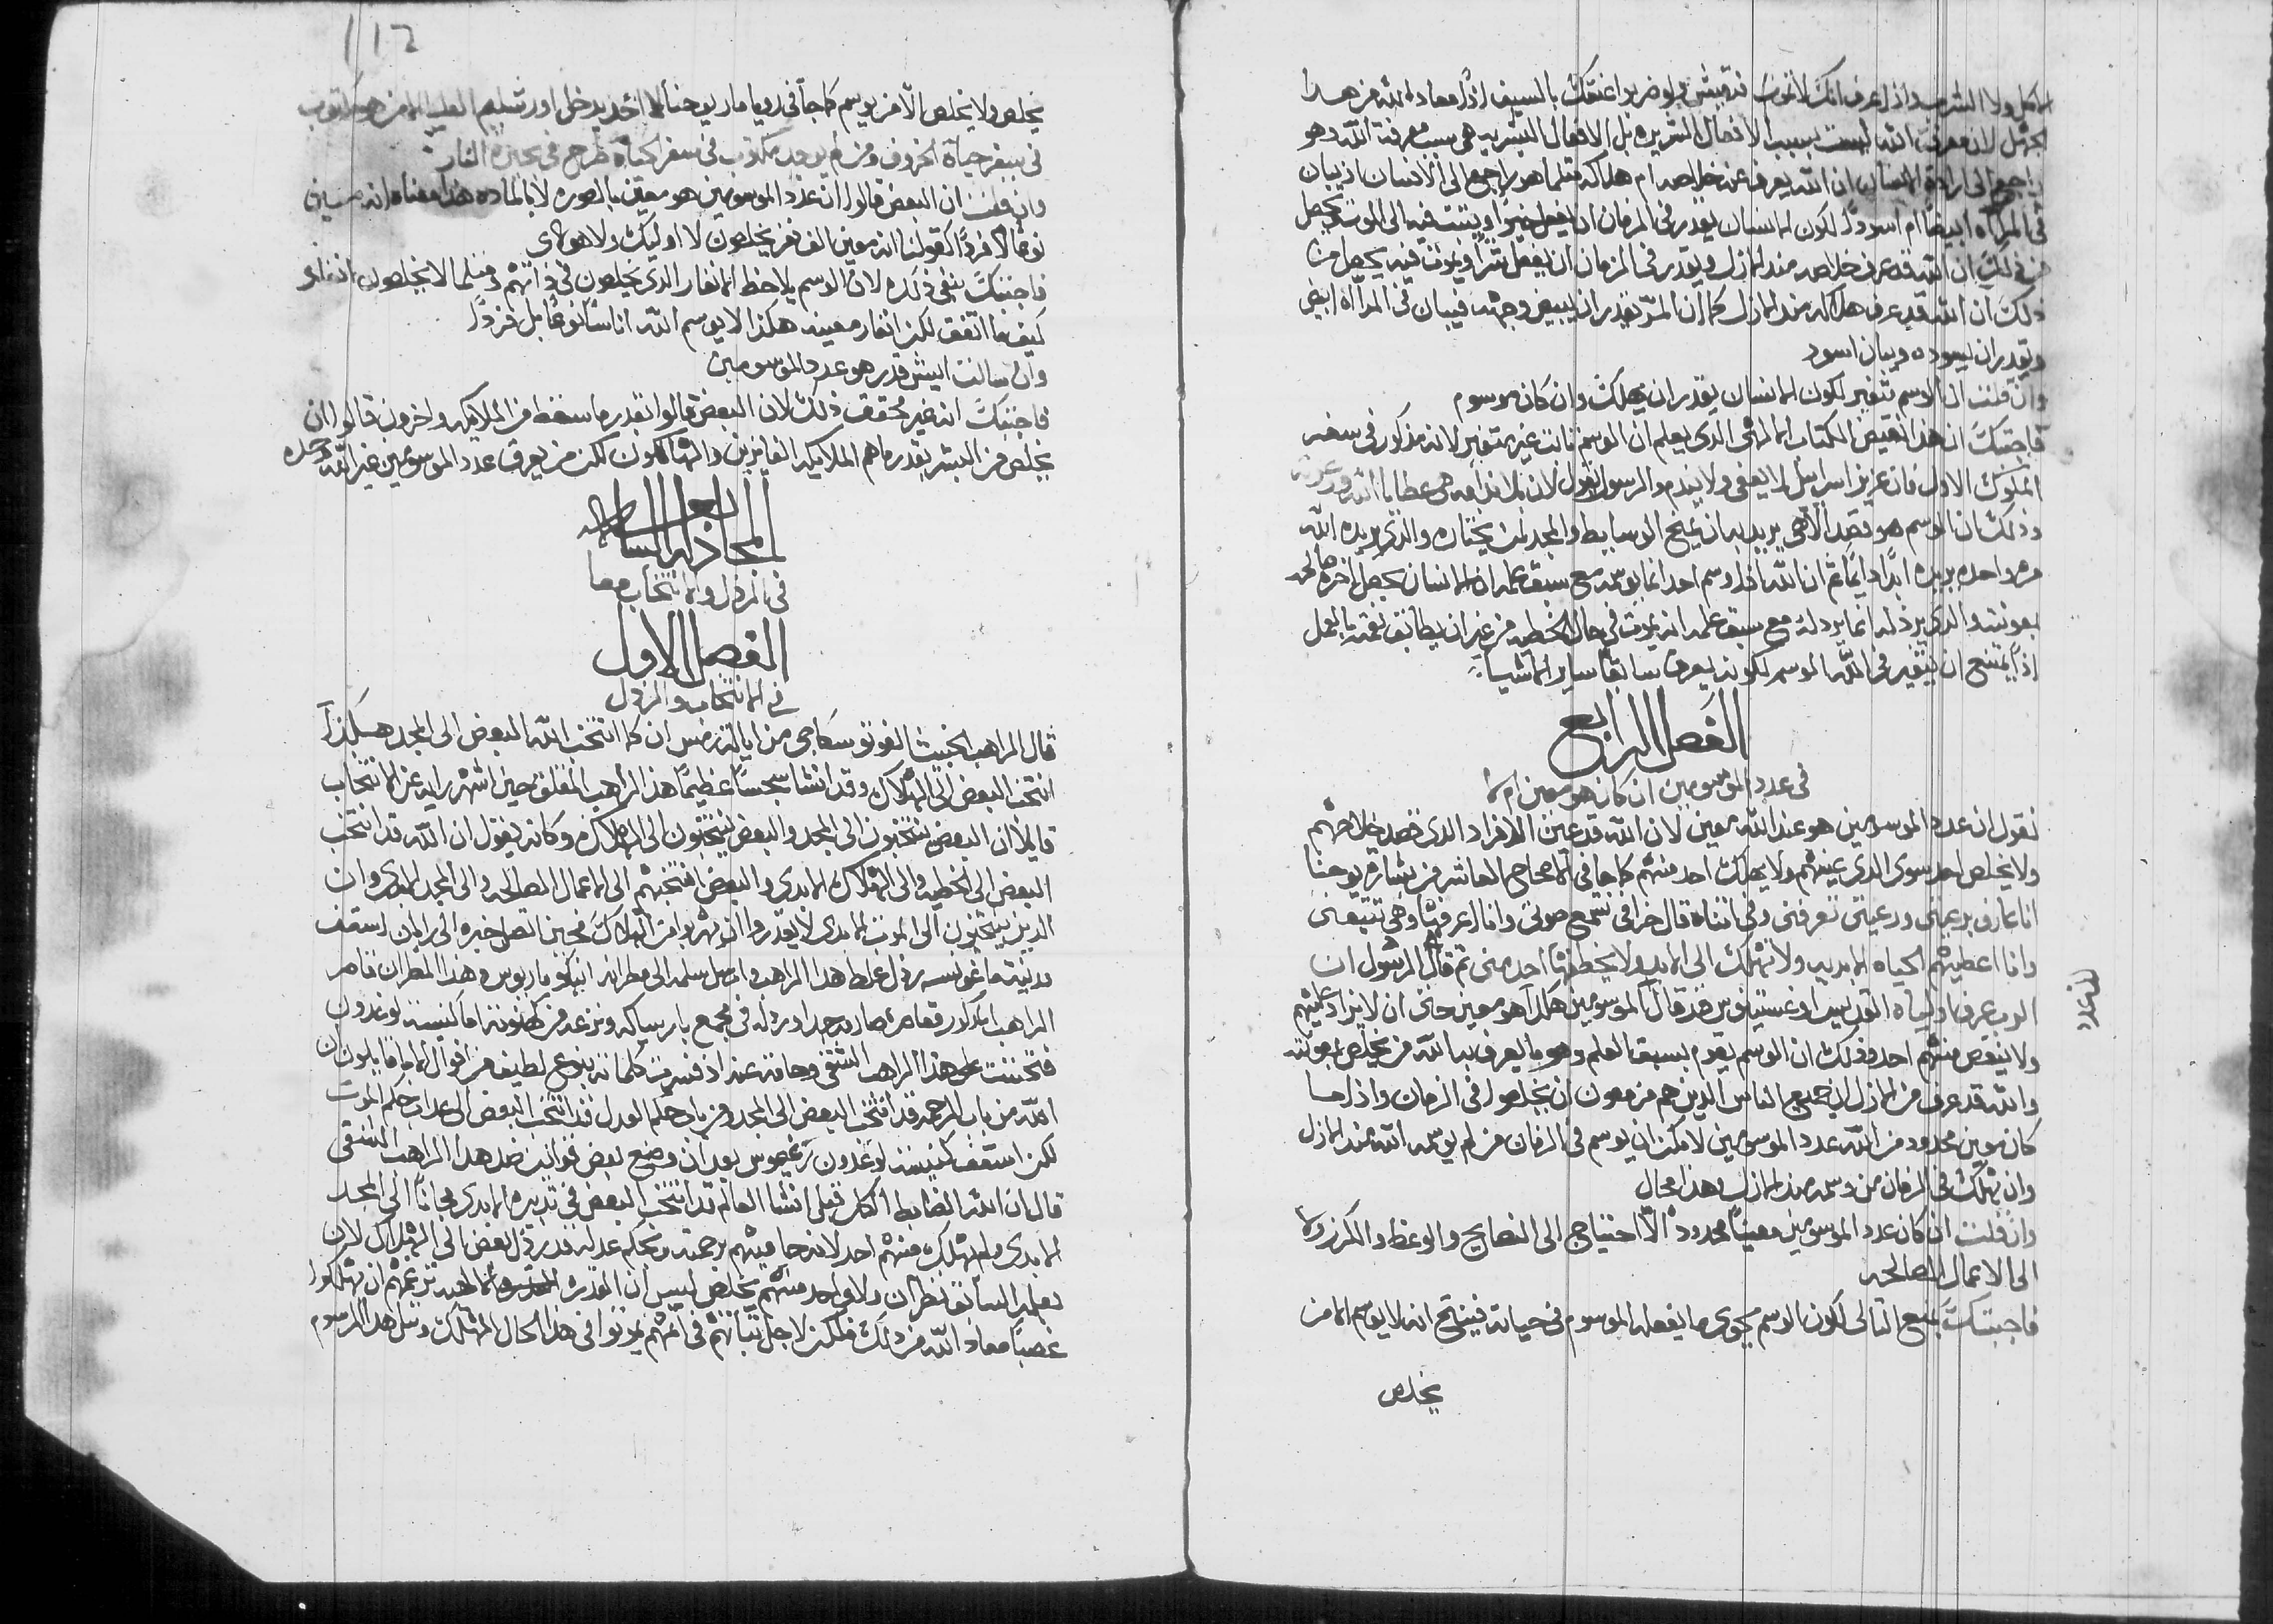 الاكل ولا الشرب واذا عرف انك لا تموت فتعيش ولو ضربوا عنقك بالسيف اذاً معاذ الله من هذا
الجهل لان معرفة الله ليست بسبب الافعال البشريه بل الافعال البشريه هي سبب معرفة الله وهو
راجع الى ارادة الانسان ان الله يعرف عنه خلاصه ام هلاكه مثلما هو راجع الى الانسان ان يبان
في المرآه ابيضاً ام اسوداً لكون الانسان يقدر في الزمان ان يفعل خيراً ويثبت فيه الى الموت يحصل
من ذلك ان الله قد عرف خلاصه منذ الازل ويقدر في الزمان ان يفعل شراً ويموت فيه يحصل من
ذلك ان الله قد عرف هلاكه منذ الازل كما ان المرء يقدر ان يبيض وجهه فيبان في المرآه ابيض
ويقدر ان يسوده ويبان اسود
وان قلت ان الوسم يتغير لكون الانسان يقدر ان يهلك وان كان موسوم
فاجبتك ان هذا نقيض الكتاب الالهي الذي يعلم ان الوسم ثابت غير متغير لانه مذكور في سفر
الملوك الاول فان عزيز اسرائيل لا يعفى ولا يندم والرسول يقول لان بلا ندامه هي عطايا الله ودعوته
وذلك ان الوسم هو قصد الاهي يريد به ان يمنح الوسايط والمجد لمن يختاره والذي يريده الله
مره واحده يريده ابداً دايماً ثم ان الله اذا وسم احد انما يوسمه مع سبق علمه ان الانسان يجعل اخرة صالحه
بعونته والذي يرذله انما يرذله مع سبق علمه انه يموت في حال الخطيه من غير ان يطابق نعمته بالعمل
اذاً يمتنع ان يتغير في الله الوسم لكونه يعرف سابقاً ساير الاشيا
الفصل الرابع
في عدد الموسومين ان كان هو معين ام لا
نقول ان عدد الموسومين هو عند الله معين لان الله قد عين الافراد الذي قصد خلاصهم
ولا يخلص احد سوى الذي عينهم ولا يهلك احد منهم كما جا في الاصحاح العاشر من بشارة يوحنا
انا عارف برعيتي ورعيتي تعرفني وفي اثناه قال خرافي تسمع صوتي وانا اعرفها وهي تتبعني
وانا اعطيهم الحياه الابديه ولا تهلك الى الابد ولا يخطفها احد مني ثم قال الرسول ان
الرب عرف اوليآه القديس اوغسطينوس قد قال الموسومين هكذا هو معين حتى ان لا يزاد عليهم
لعدد
ولا ينقص منهم احد وذلك ان الوسم يقدم بسبق العلم وهو ما يعرف به الله من يخلص بعونته
والله قد عرف من الازل جميع الناس الذين هم مزمعون ان يخلصوا في الزمان واذا ما
كان معين محدود من الله عدد الموسومين لا يمكن ان يوسم في الزمان من لم يوسمه الله منذ الازل
وان يهلك في الزمان من وسمه منذ الازل بهذا محال
وان قلت ان كان عدد الموسومين معيناً محدوداً الا احتياج الى النصايح والوعظ والكرز ولا
الى الاعمال الصالحه
فاجبتك بمنع التالي لكون الوسم يحوي ما يفعله الموسوم في حياته فينتج انه لا يوسم الا من
يخلص
112
يخلص ولا يخلص الا من يوسم كما جآ في رويا مار يوحنا لا احد يدخل اورشليم العليا الا من هو مكتوب
في سفر حياة الخروف ومن لم يوجد مكتوب في سفر الحياة طرح في بحيرة النار
وان قلت ان البعض قالوا ان عدد الموسومين هو معين بالصوره لا بالماده هذا معناه انه معين
نوعاً لا فرداً كقولنا انه معين الف نفر يخلصون لا اوليك ولا هولاي
فاجبتك بنفي ذلك لان الوسم يلاحظ الانفار الذي يخلصون في ذاتهم ومثلما لا يخلصون انفار
كيف ما اتفق لكن انفار معينه هكذا لا يوسم الله اناساً نوعاً بل فرداً
وان سالت ايش قدر هو عدد الموسومين
فاجبتك انه غير محقق ذلك لان البعض قالوا بقدر ما سقط من الملايكه واخرون قالوا ان
يخلص من البشر بقدر ما هم الملايكه الفايزين والهالكون لكن من يعرف عدد الموسومين غير الله وحده
المجادله السابعه
في الرذل والانتخاب معاً
الفصل الاول
في الانتخاب والرذل
قال الراهب الخبيث الغوتوسكاجي من ايالة رنس ان كما انتخب الله البعض الى المجد هكذا
انتخب البعض الى الهلاك وقد انشا سجساً عظيماً هذا الراهب المفلق حين اشهر رايه عن الانتخاب
قايلاً ان البعض ينتخبون الى المجد والبعض ينتخبون الى الهلاك وكانه يقول ان الله قد انتخب
البعض الى الخطيه والى الهلاك الابدي والبعض انتخبهم الى الاعمال الصالحه والى المجد الابدي وان
الذين ينتخبون الى الموت الابدي لا يقدروا ان يهربوا من الهلاك فحين اتصل خبره الى رابان اسقف
مدينة ماغونسه رذل غلط هذا الراهب وارسل سلمه الى مطرانه انيكو ماريوس وهذا المطران قاصر
الراهب المذكور قصاص صارم جداً ورذله في مجمع باريساكه ونزعه من كهنوته اما كنيسة لوغدون
فتحننت على هذا الراهب الشقي وحامت عنه اذ فسرت كلماته بنوع لطيف من اقوال الابا قايلون ان
الله من باب الرحمه قد انتخب البعض الى المجد ومن باب حكم العدل قد انتخب البعض الى عذاب حكم الموت
لكن اسقف كنيسة لوغدون رميجيوس بعد ان وضع بعض قوانين ضد هذا الراهب الشقي
قال ان الله الضابط الكل قبل انشا العالم قد انتخب البعض في تدبيره الابدي مجاناً الى المجد
الابدي ولم يهلك منهم احد لانه حاميهم برحمته وبحكم عدله قد رذل البعض الى الهلاك لان
بعلمه السابق نظر ان ولا واحد منهم يخلص ليس ان القدره الالهيه تزعمهم ان يهلكوا
غصباً معاذ الله من ذلك ولكن لاجل ثباتهم في اثمهم يموتوا في هذا الحال المهلك ومثل هذا المرسوم